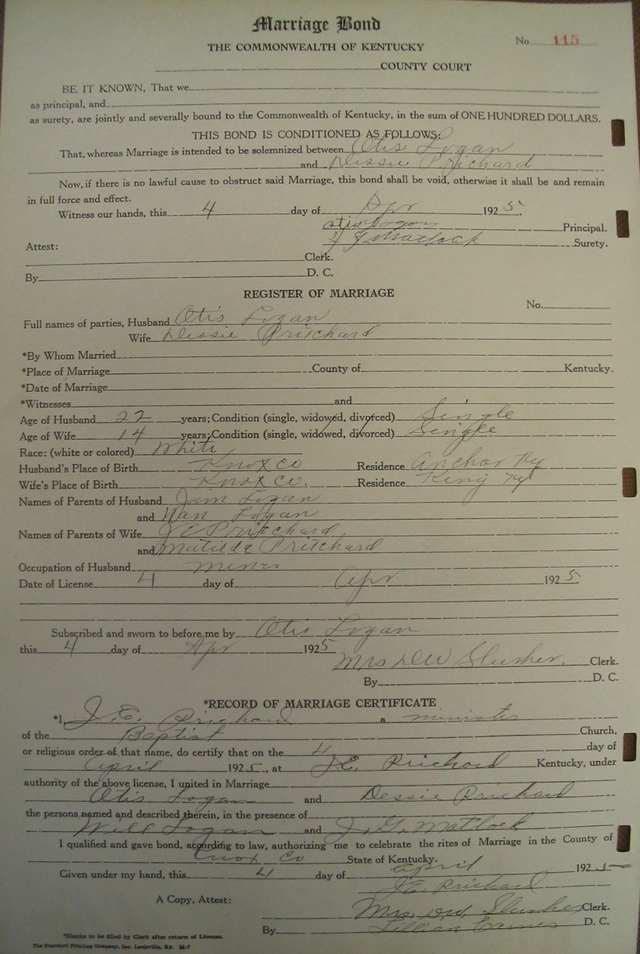 Marriage Bond
No. 115
THE COMMONWEALTH OF KENTUCKY
COUNTY COURT
BE IT KNOWN, That we
as principal, and
as surety, are jointly and severally bound to the Commonwealth of Kentucky, in the sum of ONE HUNDRED DOLLARS.
THIS BOND IS CONDITIONED AS FOLLOWS:
That, whereas Marriage is intended to be solemnized between Otis Logan
and Dessie Prichard
Now, if there is no lawful cause to obstruct said Marriage, this bond shall be void, otherwise it shall be and remain
in full force and effect.
Witness our hands, this 4 day of Apr 1925.
Otis Logan Principal.
Matlock Surety.
Attest:
Clerk.
By D. C.
REGISTER OF MARRIAGE
No.
Full names of parties, Husband Otis Logan
Wife Dessie Pritchard
*By Whom Married
*Place of Marriage County of Kentucky.
*Date of Marriage
*Witnesses and
Age of Husband 22 years; Condition (single, widowed, divorced) Single
Age of Wife 14 years; Condition (single, widowed, divorced) Single
Race: (white or colored) White
Husband's Place of Birth Knox Co Residence Anchor Ky
Wife's Place of Birth Knox Co. Residence King Ky
Names of Parents of Husband Jim Logan
and Nan Logan
Names of Parents of Wife Pritchard
and Matilda Pritchard
Occupation of Husband miner
Date of License 4 day of Apr 1925.
Subscribed and sworn to before me by Otis Logan
this 4 day of Apr 1925
Mrs DW Slusher. Clerk.
By D. C.
*RECORD OF MARRIAGE CERTIFICATE
*I, J. E. Prichard a minister
of the Baptist Church,
or religious order of that name, do certify that on the 4 day of
April 1925, at J.E. Prichard Kentucky, under
authority of the above license, I united in Marriage
Otis Logan and Dessie Prichard
the persons named and described therein, in the presence of
Will Logan and J. G. Matlock
I qualified and gave bond, according to law, authorizing me to celebrate the rites of Marriage in the County of
Knox Co State of Kentucky.
Given under my hand, this 4 day of April 1925
J.E. Prichard
A Copy, Attest: Mrs. DW. Slusher Clerk.
By Lillian D. C.
*Blanks to be filled by Clerk after return of License.
The Standard Printing Company, Inc. Louisville, Ky.